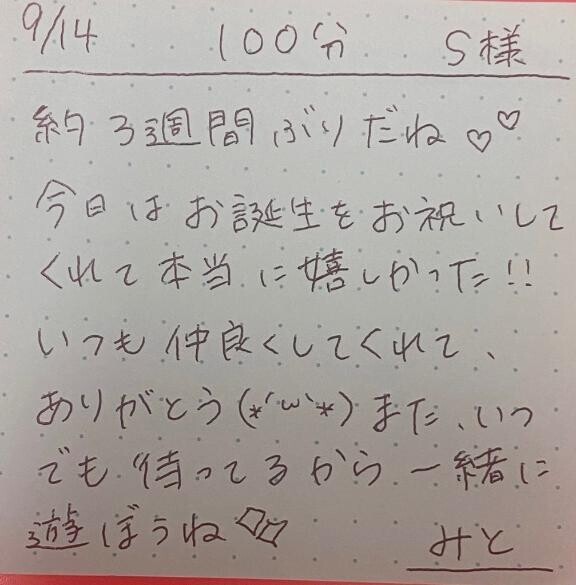 9/14 100分 S様
約3週間ぶりだね♡♡
今日はお誕生をお祝いして
くれて本当に嬉しかった!!
いつも仲良くしてくれて、
ありがとう(*´ω`*)また、いつ
でも待ってるから一緒に
遊ぼうね♡♡
みと